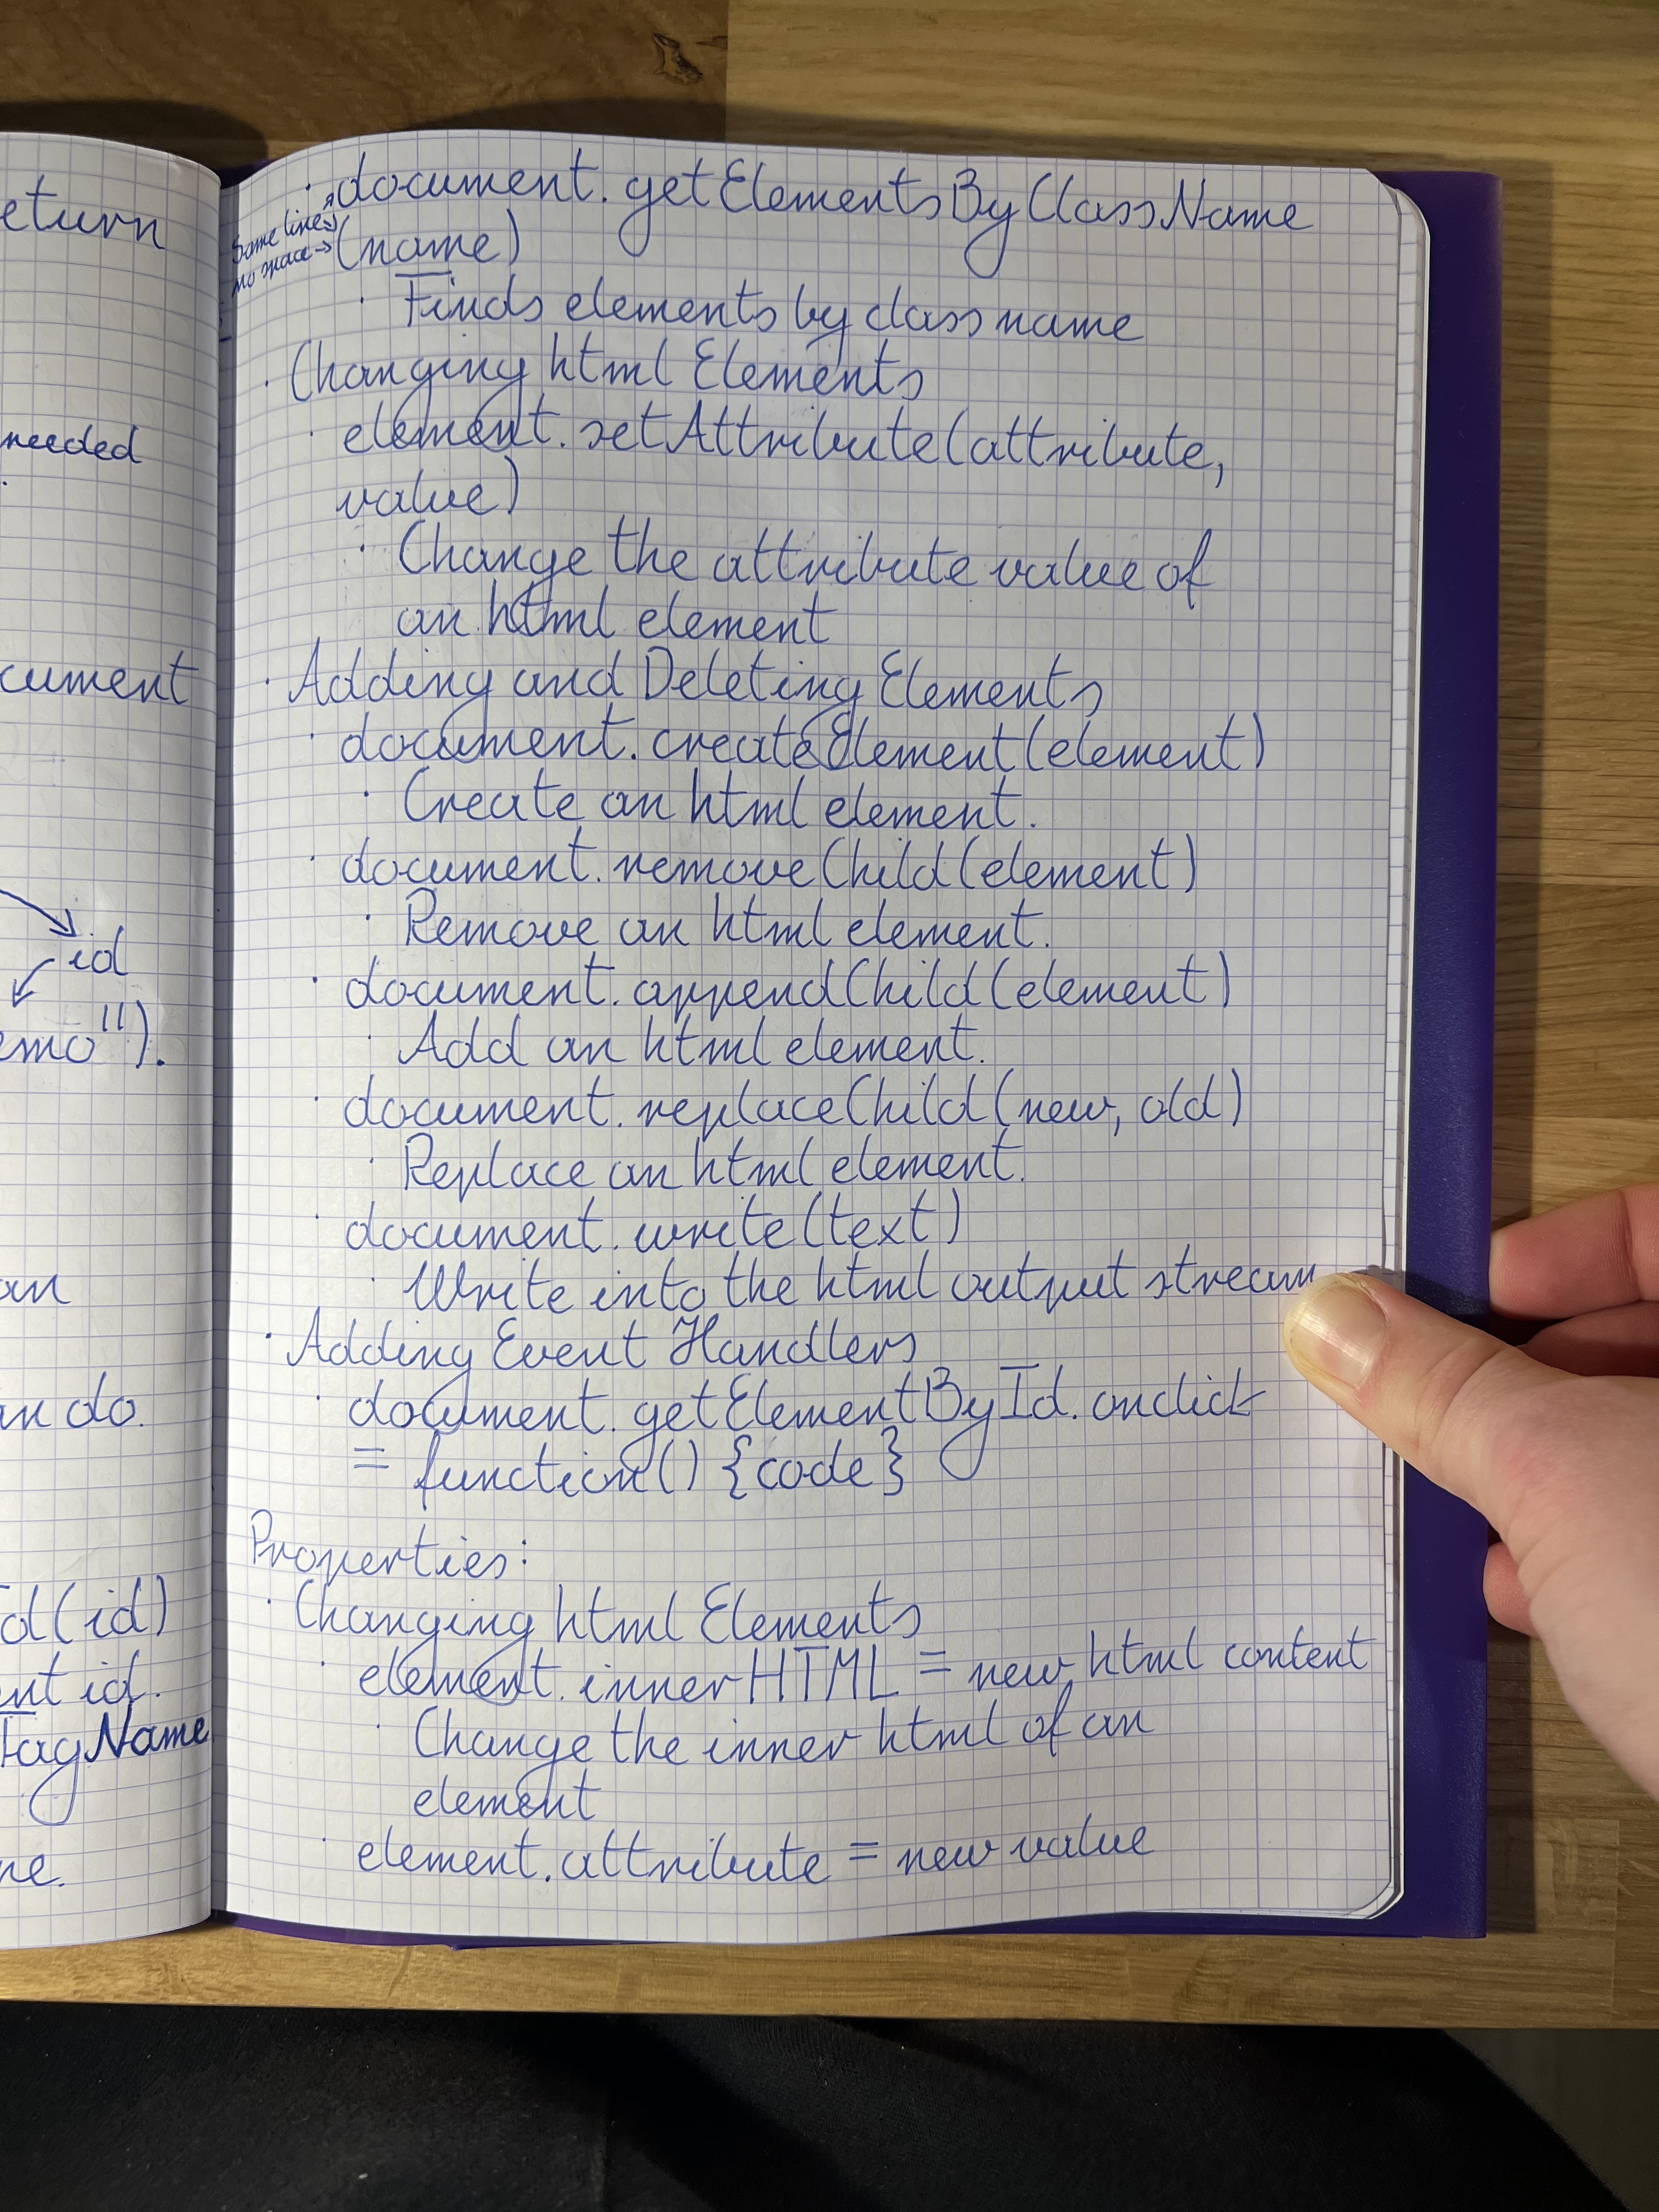 eturn
needed
cument
id
emo").
an
an do.
d(id)
ent id.
TagName
me.
· document.getElementsByClassName
Same line→
no space→ (name)
· Finds elements by class name
· Changing html Elements
· element.setAttribute(attribute,
value)
· Change the attribute value of
an html element
· Adding and Deleting Elements
· document.createElement(element)
· Create an html element.
· document.removeChild(element)
· Remove an html element.
· document.appendChild(element)
· Add an html element.
· document.replaceChild(new, old)
· Replace an html element.
· document.write(text)
· Write into the html output stream
· Adding Event Handlers
· document.getElementById.onclick
= function() {code}
Properties:
· Changing html Elements
· element.innerHTML = new html content
· Change the inner html of an
element
· element.attribute = new value